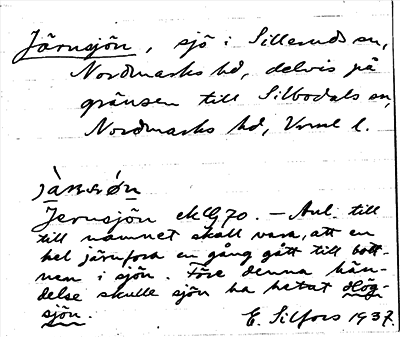 Järnsjön, sjö i Silleruds sn,
Nordmarks hd, delvis på
gränsen till Silbodals sn,
Nordmarks hd, Vrml l.
Jernsjön ekG 70. – Anl. till
till namnet skall vara, att en
hel järnfora en gång gått till bott-
nen i sjön. Före denna hän-
delse skulle sjön ha hetat Hög-
sjön.
E. Silfors 1937.